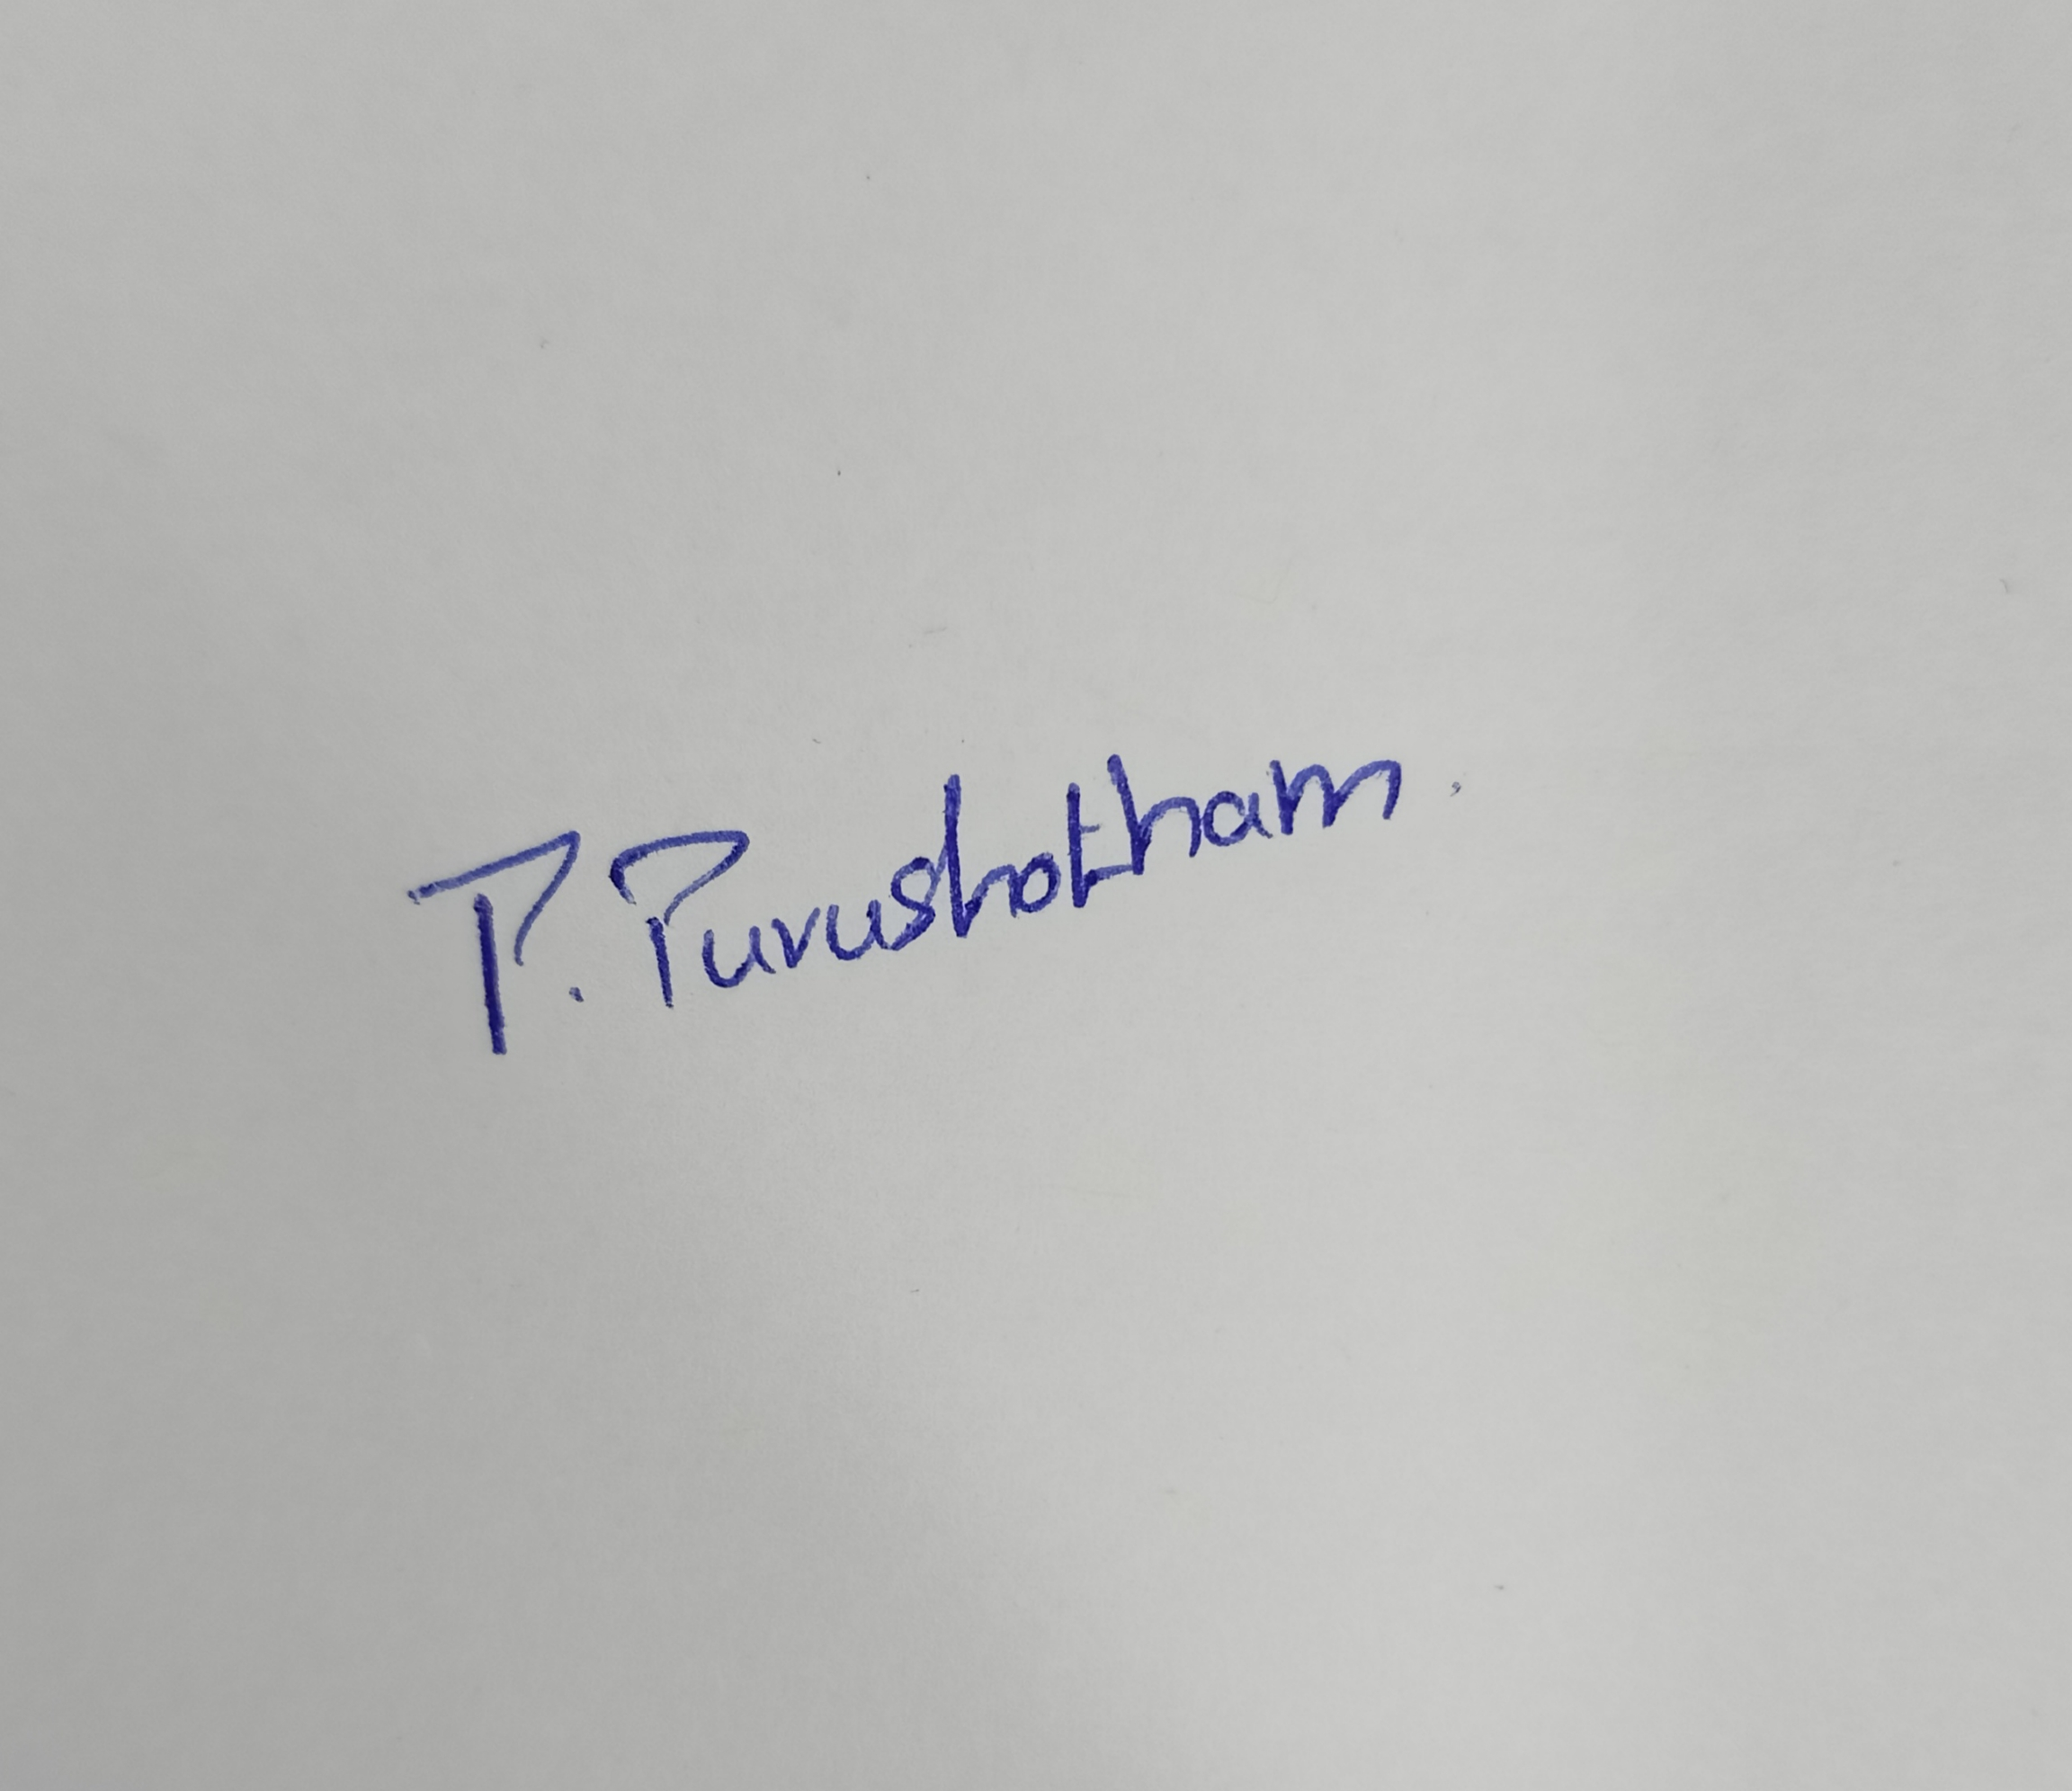 P. Purushotham.